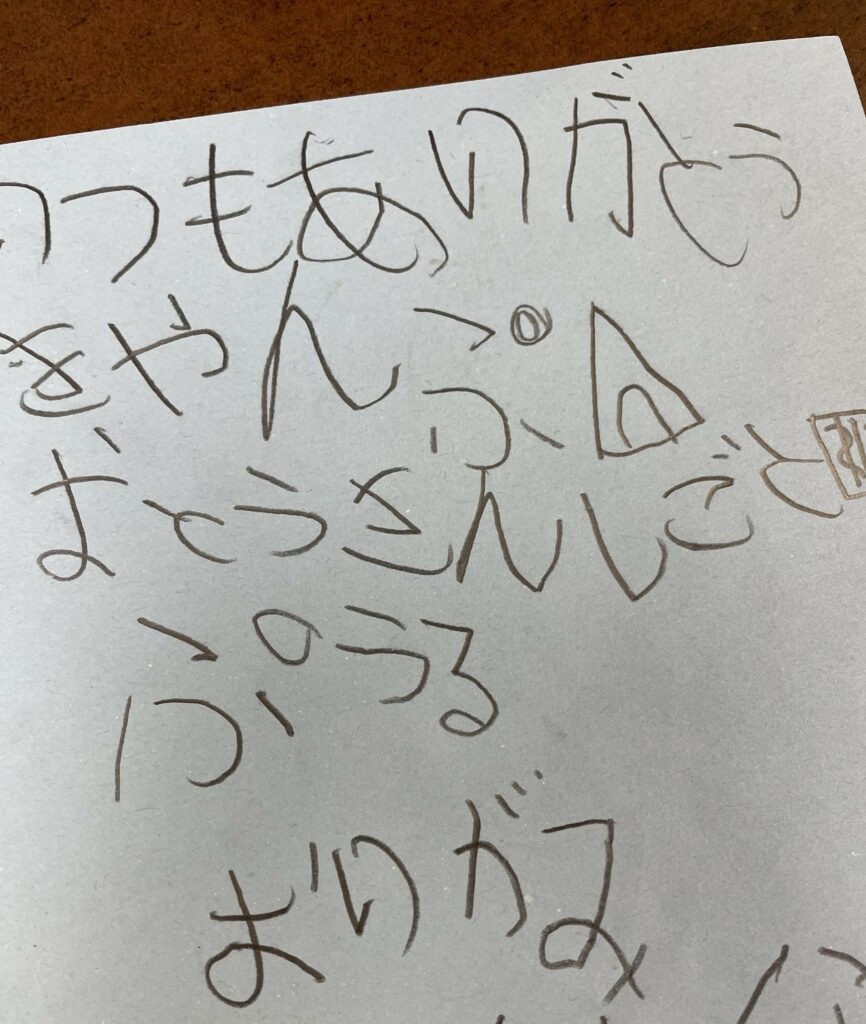 いつもありがとう
きやんぷ
おとうさんしごと
ぷうる
おりがみ